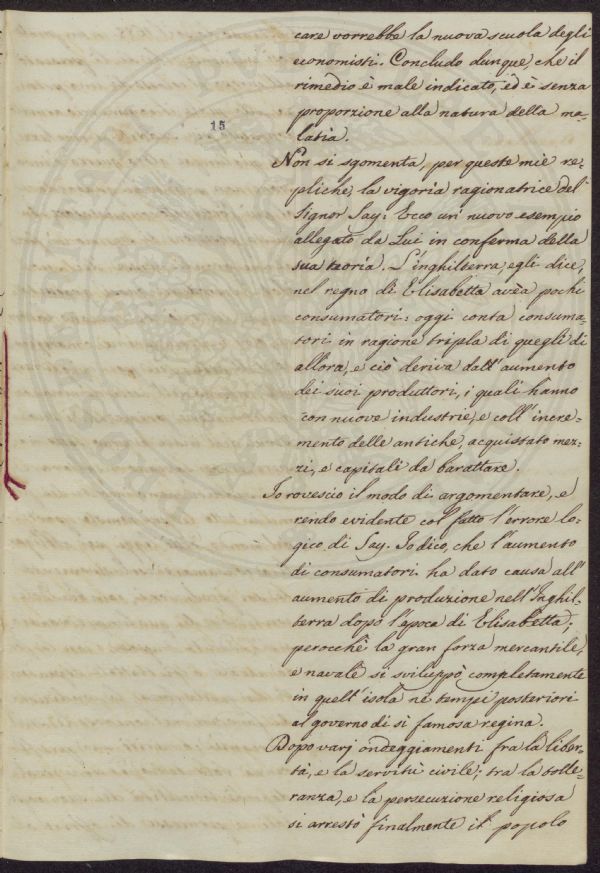 care vorrebbe la nuova scuola degli
economisti. Concludo dunque, che il
rimedio è male indicato, ed è senza
proporzione alla natura della ma-
latia.
15
Non si sgomenta, per queste mie re-
pliche, la vigoria ragionatrice del
Signor Say: Ecco un nuovo esempio
allegato da Lui in conferma della
sua teoria. L'inghilterra, egli dice,
nel regno di Elisabetta avea pochi
consumatori: oggi conta consuma-
tori in ragione tripla di quegli di
allora, e ciò deriva dall'aumento
dei suoi produttori, i quali hanno
con nuove industrie, e coll'incre-
mento delle antiche, acquistato mez-
zi, e capitali da barattare.
Io rovescio il modo di argomentare, e
rendo evidente col fatto l'errore lo-
gico di Say. Io dico, che l'aumento
di consumatori ha dato causa all'
aumento di produzione nell'Inghil-
terra dopo l'epoca di Elisabetta;
perocchè la gran forza mercantile,
e navale si sviluppò completamente
in quell'isola ne tempi posteriori
al governo di sì famosa regina.
Dopo varj ondeggiamenti fra la liber-
tà, e la servitù civile; tra la tolle-
ranza, e la persecuzione religiosa
si arrestò finalmente il popolo